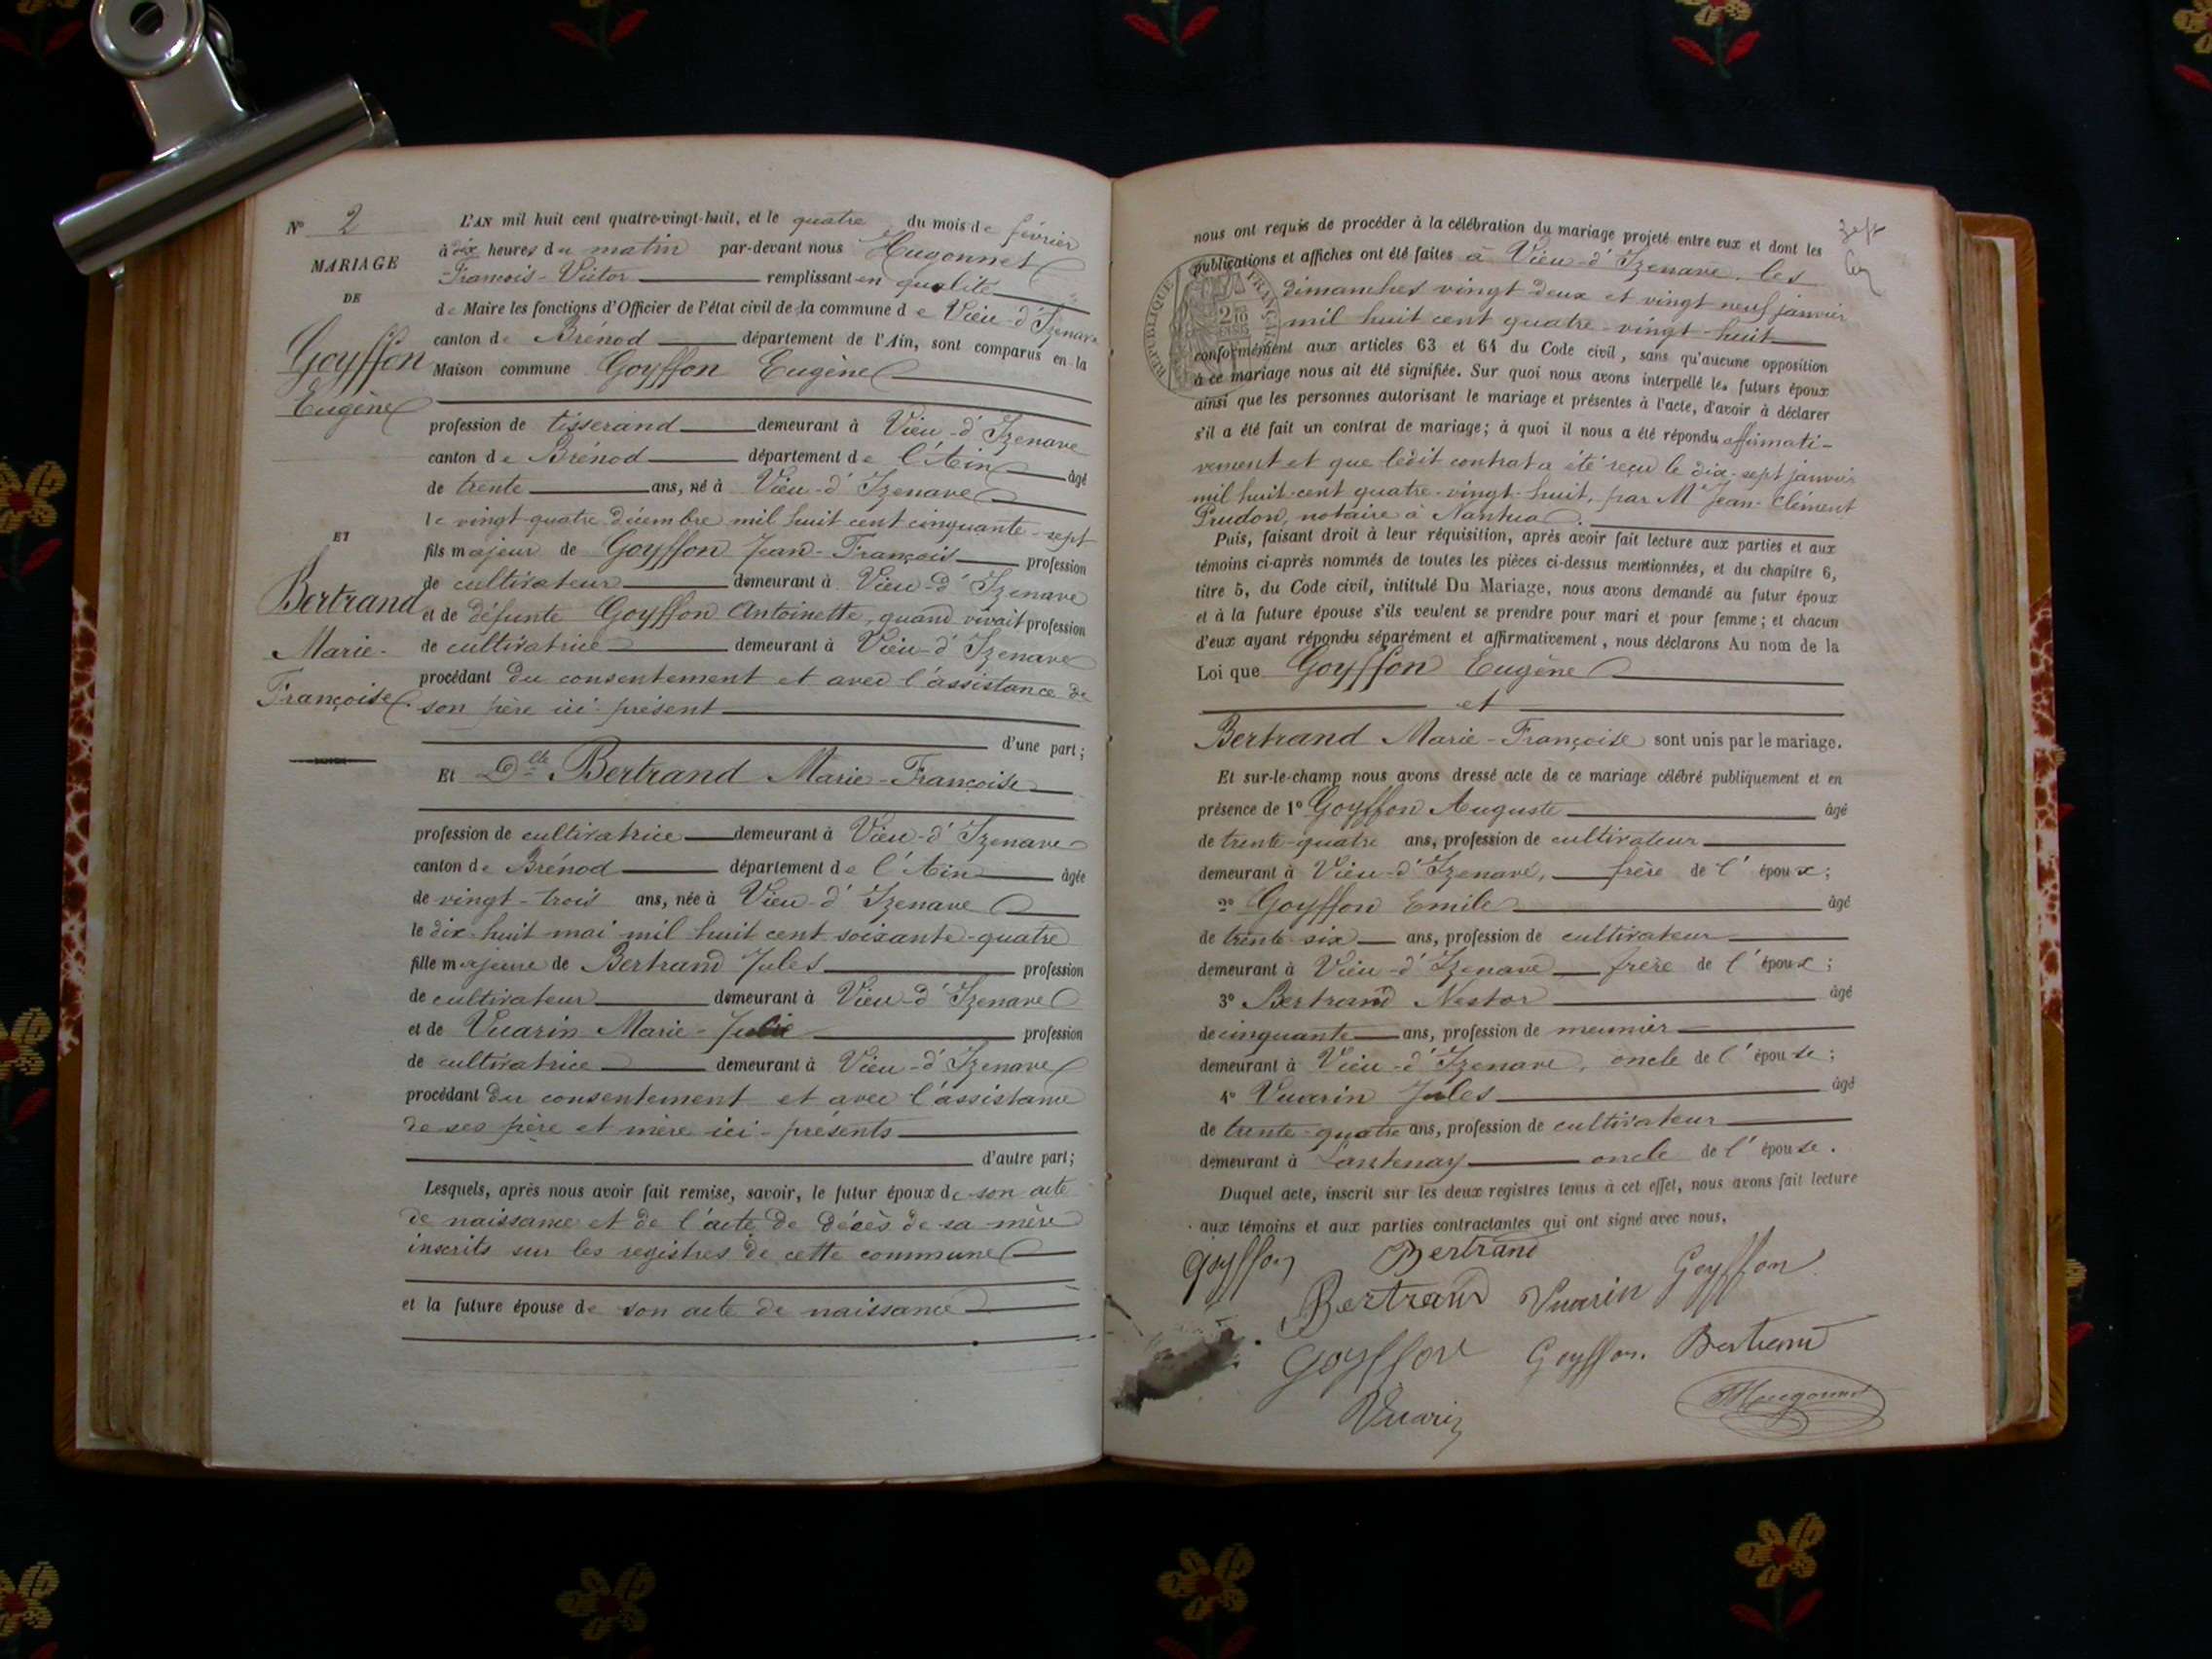 N° 2
MARIAGE
DE
Goyffon
Eugène
ET
Bertrand
Marie-
Françoise
L'AN mil huit cent quatre-vingt-huit, et le quatre du mois de février
à dix heures du matin par-devant nous Hugonnet
François-Victor remplissant en qualité
de Maire les fonctions d'Officier de l'état civil de la commune de Vieu-d'Izenave
canton de Brénod département de l'Ain, sont comparus en la
Maison commune Goyffon Eugène
profession de tisserand demeurant à Vieu-d'Izenave
canton de Brénod département de l'Ain âgé
de trente ans, né à Vieu-d'Izenave
le vingt-quatre décembre mil huit cent cinquante-sept
fils majeur de Goyffon Jean-François profession
de cultivateur demeurant à Vieu-d'Izenave
et de défunte Goyffon Antoinette, quand vivait profession
de cultivatrice demeurant à Vieu-d'Izenave
procédant du consentement et avec l'assistance de
son père ici présent
d'une part;
Et Dlle Bertrand Marie-Françoise
profession de cultivatrice demeurant à Vieu-d'Izenave
canton de Brénod département de l'Ain âgée
de vingt-trois ans, née à Vieu-d'Izenave
le dix-huit mai mil huit cent soixante-quatre
fille majeure de Bertrand Jules profession
de cultivateur demeurant à Vieu-d'Izenave
et de Vuarin Marie-Julie profession
de cultivatrice demeurant à Vieu-d'Izenave
procédant du consentement et avec l'assistance
de ses père et mère ici-présents
d'autre part;
Lesquels, après nous avoir fait remise, savoir, le futur époux de son acte
de naissance et de l'acte de décès de sa mère
inscrits sur les registres de cette commune
et la future épouse de son acte de naissance
nous ont requis de procéder à la célébration du mariage projeté entre eux et dont les
publications et affiches ont été faites à Vieu-d'Izenave, les
dimanches vingt deux et vingt neuf janvier
mil huit cent quatre-vingt-huit
conformément aux articles 63 et 64 du Code civil, sans qu'aucune opposition
à ce mariage nous ait été signifiée. Sur quoi nous avons interpellé les futurs époux
ainsi que les personnes autorisant le mariage et présentes à l'acte, d'avoir à déclarer
s'il a été fait un contrat de mariage; à quoi il nous a été répondu affirmati-
vement et que ledit contrat a été reçu le dix-sept janvier
mil huit-cent quatre-vingt-huit, par Me Jean-Clément
Prudon, notaire à Nantua.
Puis, faisant droit à leur réquisition, après avoir fait lecture aux parties et aux
témoins ci-après nommés de toutes les pièces ci-dessus mentionnées, et du chapitre 6,
titre 5, du Code civil, intitulé Du Mariage, nous avons demandé au futur époux
et à la future épouse s'ils veulent se prendre pour mari et pour femme; et chacun
d'eux ayant répondu séparément et affirmativement, nous déclarons Au nom de la
Loi que Goyffon Eugène
et
Bertrand Marie-Françoise sont unis par le mariage.
Et sur-le-champ nous avons dressé acte de ce mariage célébré publiquement et en
présence de 1° Goyffon Auguste âgé
de trente-quatre ans, profession de cultivateur
demeurant à Vieu-d'Izenave, frère de l'époux;
2° Goyffon Emile âgé
de trente six ans, profession de cultivateur
demeurant à Vieu-d'Izenave frère de l'époux;
3° Bertrand Nestor âgé
de cinquante ans, profession de meunier
demeurant à Vieu-d'Izenave, oncle de l'épouse;
4° Vuarin Jules âgé
de trente-quatre ans, profession de cultivateur
demeurant à Lantenay oncle de l'épouse.
Duquel acte, inscrit sur les deux registres tenus à cet effet, nous avons fait lecture
aux témoins et aux parties contractantes qui ont signé avec nous.
Goyffon Bertrand
Bertrand Vuarin Goyffon
Goyffon Goyffon. Bertrand
Vuarin Hugonnet
RÉPUBLIQUE FRANÇAISE